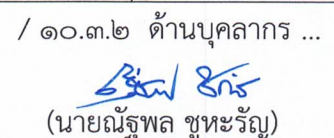 / ๑๐.๓.๒ ด้านบุคลากร ...
(นายณัฐพล ชูหะรัญ)